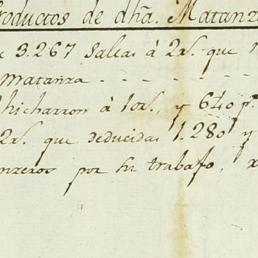 Productos de dha. Matanz
e 3.267 Salcas à 2rs. que
Matanza - - - - -
hicharron à 10rs. y 640 p.
2rs. que deducidas 1.280 y
nzeros por su trabajo, x